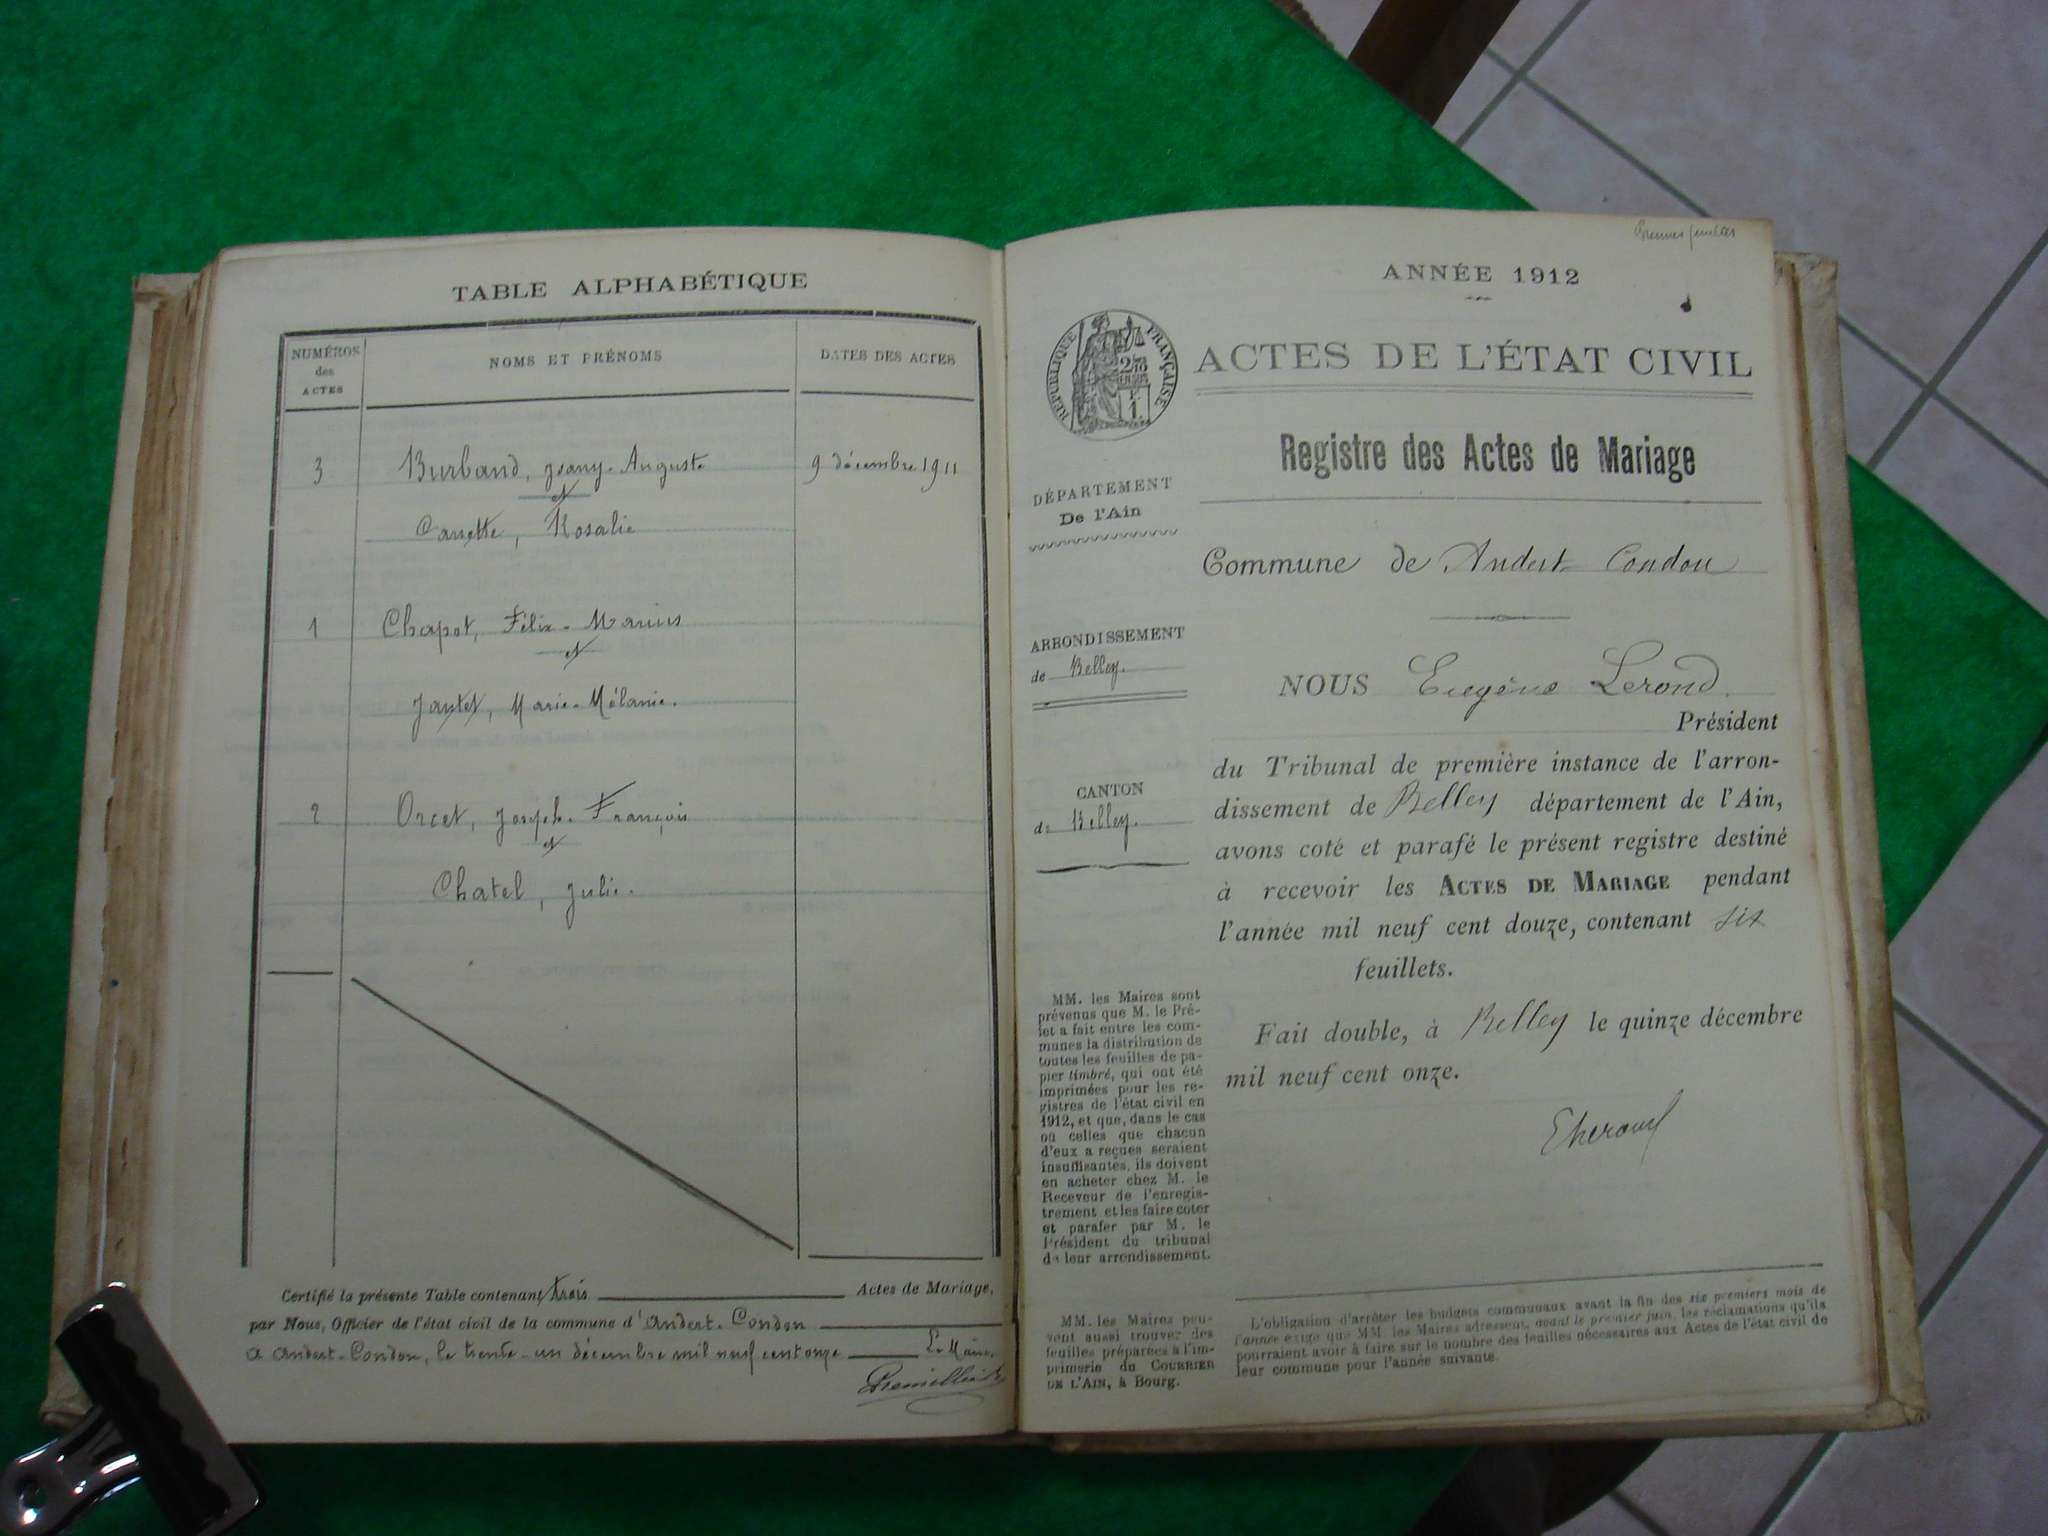 TABLE ALPHABÉTIQUE
NUMÉROS
des
ACTES
NOMS ET PRÉNOMS
DATES DES ACTES
3 Burband, Joany-Auguste 9 décembre 1911
et
Carrette, Rosalie
1 Chapot, Félix-Marius
et
Jantet, Marie-Mélanie.
2 Orcet, Joseph-François
et
Chatel, Julie.
Certifié la présente Table contenant trois Actes de Mariage,
par Nous, Officier de l'état civil de la commune d'Andert-Condon
a Andert-Condon, le trente-un décembre mil neuf cent onze Le Maire,
ANNÉE 1912
RÉPUBLIQUE FRANÇAISE
ACTES DE L'ÉTAT CIVIL
Registre des Actes de Mariage
DÉPARTEMENT
De l'Ain
Commune de Andert-Condon
ARRONDISSEMENT
de Belley.
CANTON
de Belley.
NOUS Eugène Lerond.
Président
du Tribunal de première instance de l'arron-
dissement de Belley département de l'Ain,
avons coté et parafé le présent registre destiné
à recevoir les ACTES DE MARIAGE pendant
l'année mil neuf cent douze, contenant six
feuillets.
Fait double, à Belley le quinze décembre
mil neuf cent onze.
MM. les Maires sont
prévenus que M. le Pré-
fet a fait entre les com-
munes la distribution de
toutes les feuilles de pa-
pier timbré, qui ont été
imprimées pour les re-
gistres de l'état civil en
1912, et que, dans le cas
où celles que chacun
d'eux a reçues seraient
insuffisantes, ils doivent
en acheter chez M. le
Receveur de l'enregis-
trement et les faire coter
et parafer par M. le
Président du tribunal
de leur arrondissement.
MM. les Maires peu-
vent aussi trouver des
feuilles préparées à l'im-
primerie du COURRIER
DE L'AIN, à Bourg.
L'obligation d'arrêter les budgets communaux avant la fin des six premiers mois de
l'année exige que MM. les Maires adressent, avant le premier juin, les réclamations qu'ils
pourraient avoir à faire sur le nombre des feuilles nécessaires aux Actes de l'état civil de
leur commune pour l'année suivante.